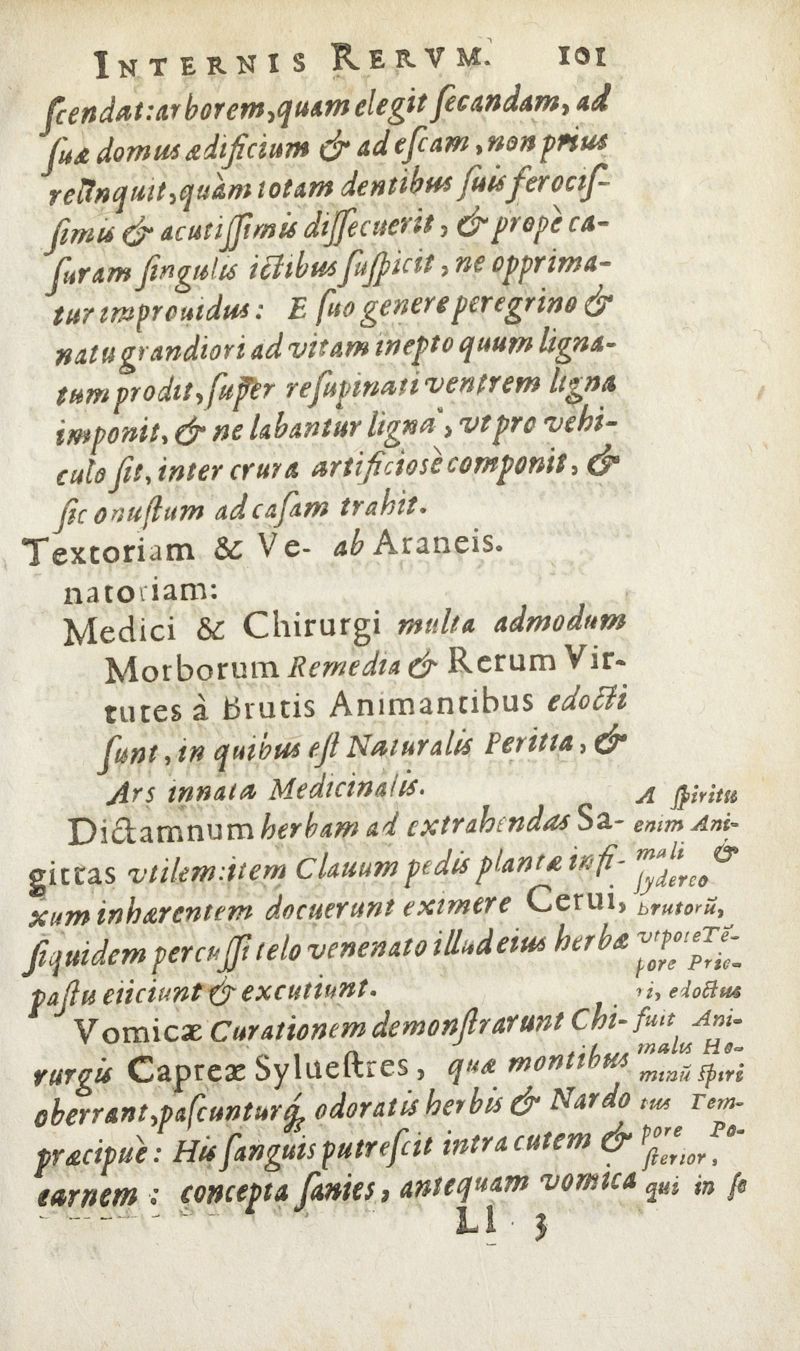 INTERNIS RERVM. 101
ſcendat: arborem, quam elegit ſecandam, ad
ſuæ domus ædificium & ad eſcam, non prius
relinquit, quàm totam dentibus ſuis ferociſ-
ſimis & acutiſſimis diſſecuerit, & propè ca-
ſuram ſingulis ictibus ſuſpicit, ne opprima-
tur improuidus: E ſuo genere peregrino &
natu grandiori ad vitam inepto quum ligna-
tum prodit, ſuper reſupinati ventrem ligna
imponit, & ne labantur ligna, vt pro vehi-
culo ſit, inter crura artificiosè componit, &
ſic onuſtum ad caſam trahit.
Textoriam & Ve- ab Araneis.
natoriam:
Medici & Chirurgi multa admodum
Morborum Remedia & Rerum Vir-
tutes à Brutis Animantibus edocti
ſunt, in quibus eſt Naturalis Peritia, &
Ars innata Medicinalis.
Dictamnum herbam ad extrahendas Sa-
gittas vtilem: item Clauum pedis plantæ infi-
xum inhærentem docuerunt eximere Cerui,
ſiquidem percuſſi telo venenato illud eius herbæ
paſtu eiiciunt & excutiunt.
Vomicæ Curationem demonſtrarunt Chi-
rurgis Capreæ Sylueſtres, quæ montibus
oberrant, paſcunturq́; odoratis herbis & Nardo
præcipuè: His ſanguis putreſcit intra cutem &
carnem: concepta ſanies, antequam vomica
Ll 3
A ſpiritu
enim Ani-
mali &
ſydereo
Brutorũ,
vtpote Tẽ-
pore Prio-
ri, edoctus
fuit Ani-
malis Ho-
minũ ſpiri
tus Tem-
pore Po-
ſterior,
qui in ſe